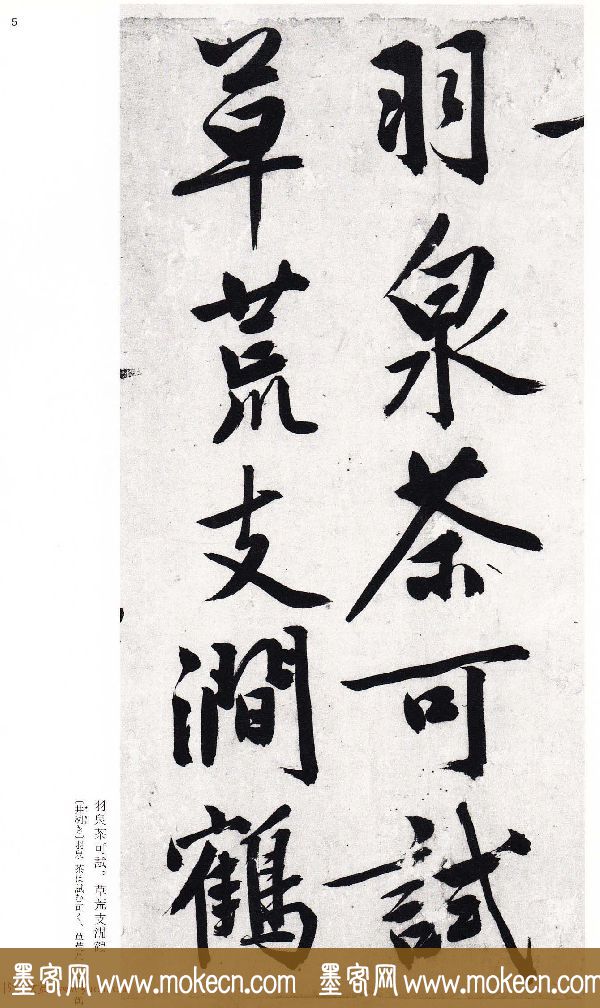 5
羽泉茶可試
草荒支澗鶴
羽泉茶可試。草荒支澗鶴
墨客网 www.mokecn.com 墨客网 www.mokecn.com